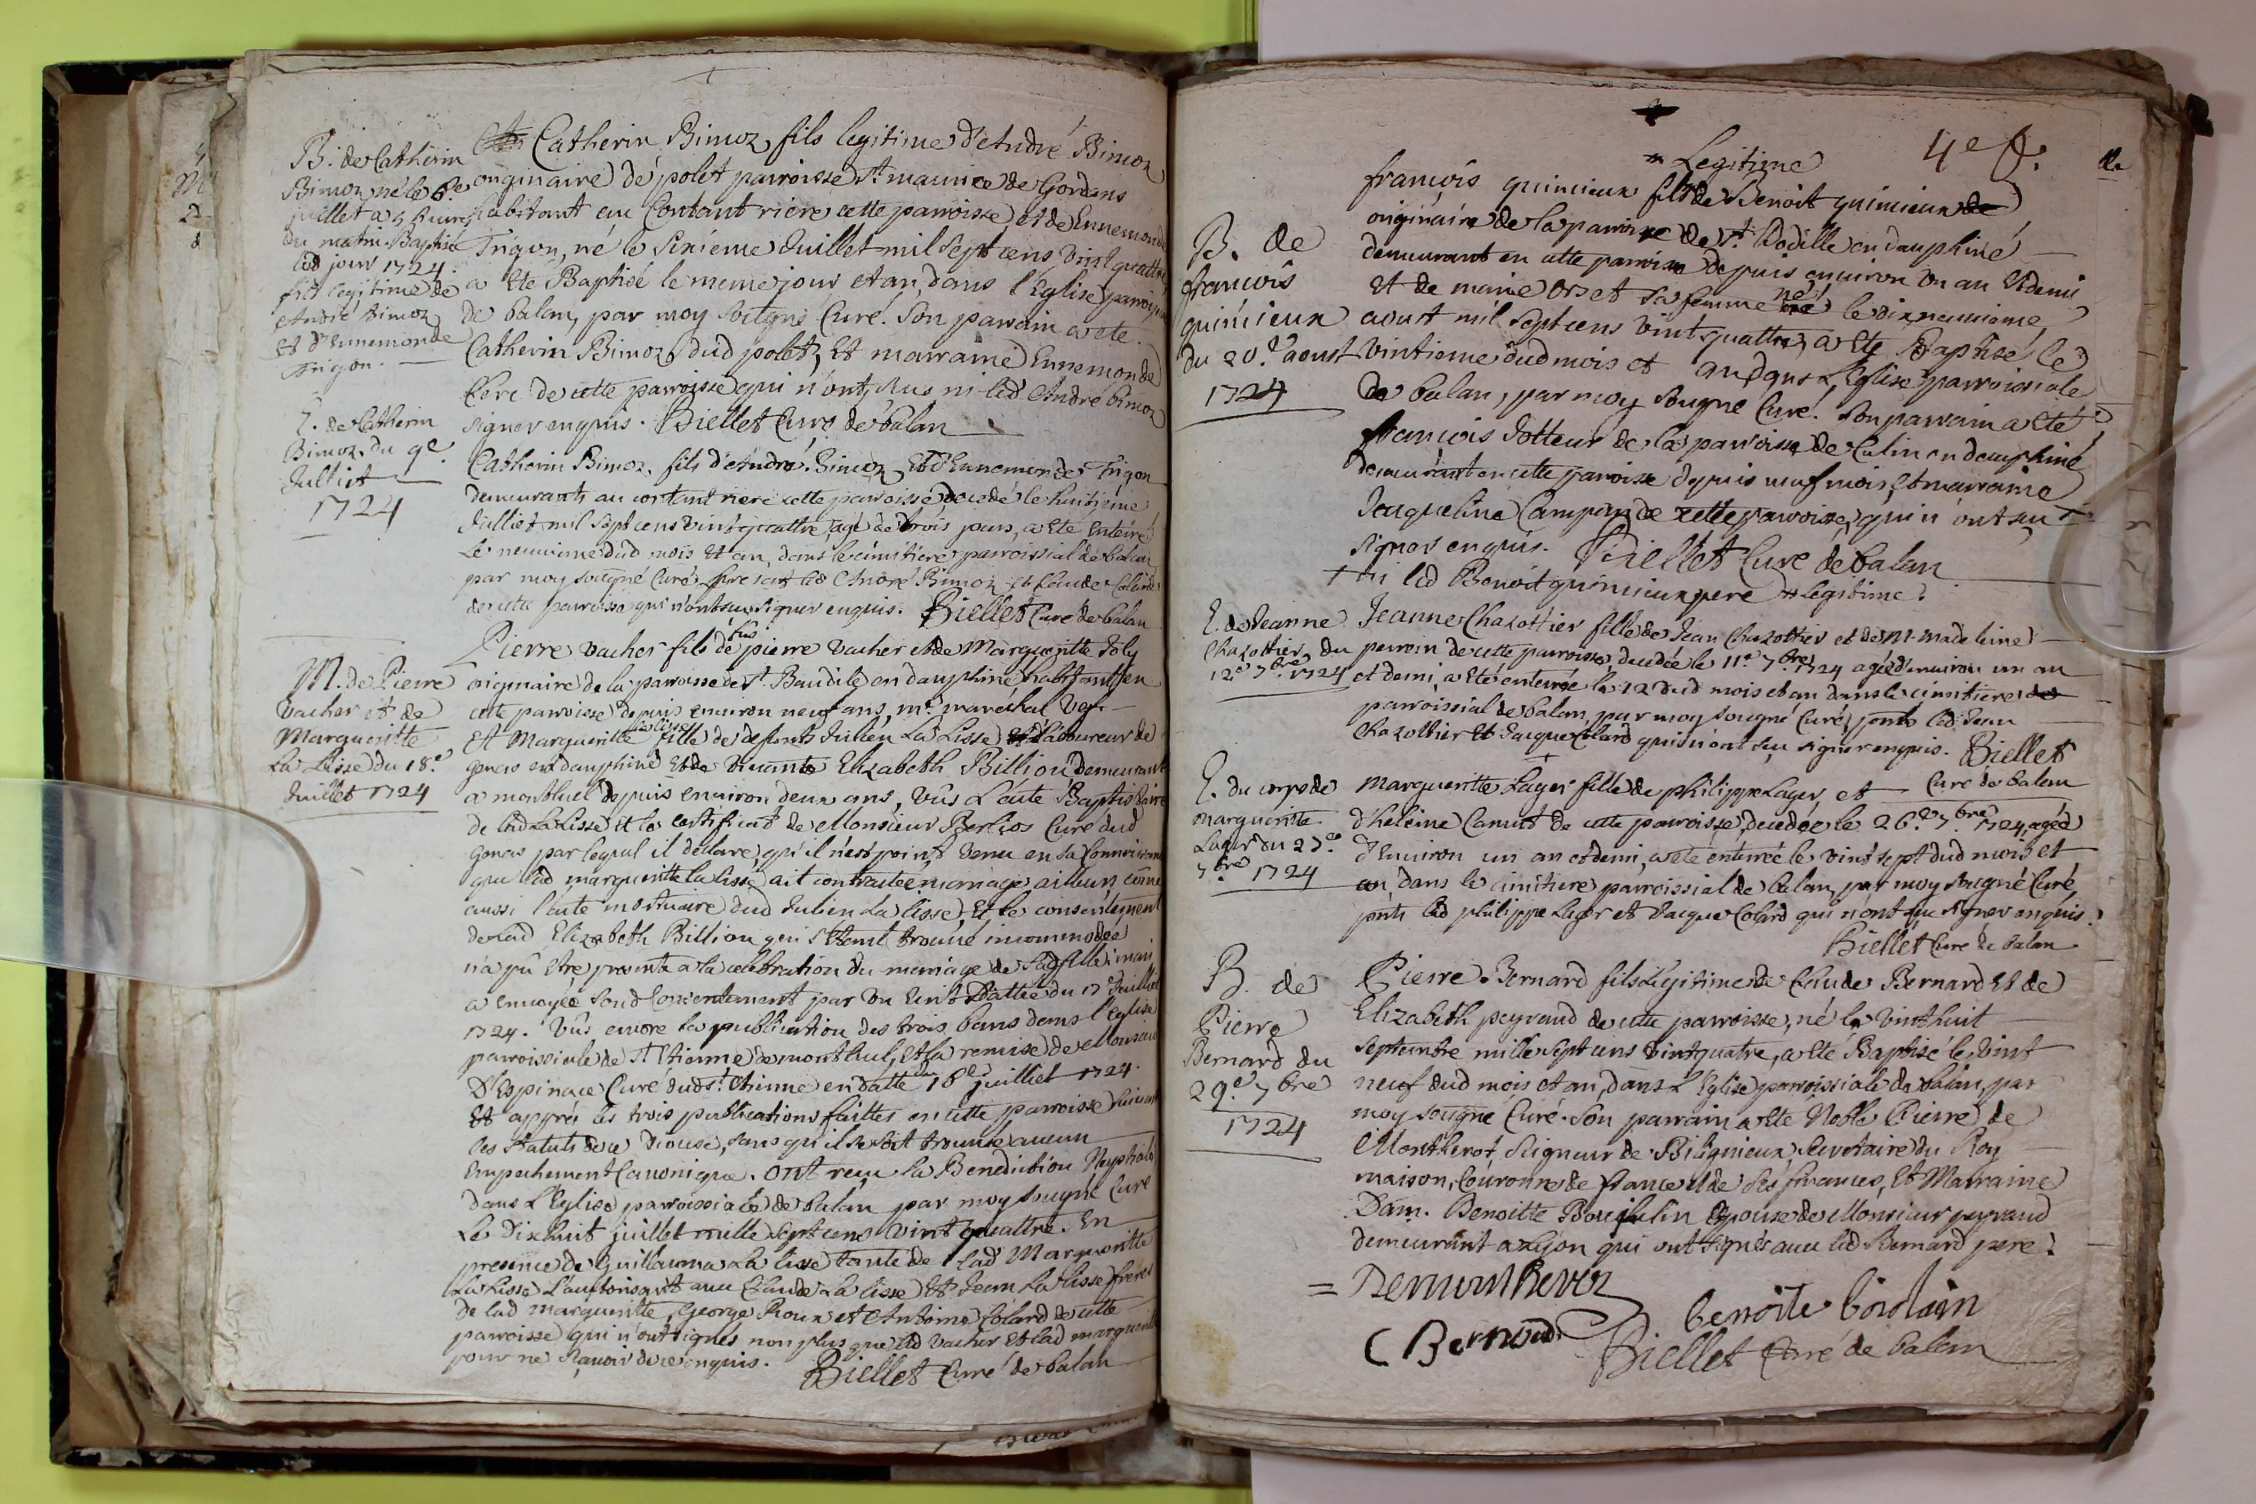 B. de Catherin
Bimoz né le 6e
juillet a 5 heures
du matin Baptisé
led jour 1724.
fils legitime de
André Bimoz
Et d'Ennemonde
Trigon.
Catherin Bimoz, fils legitime d'André Bimoz
originaire de polet parroisse St maurice de Gordans
habitant au Contant riere cette parroisse et de Ennemonde
Trigon, né le Sixieme Juillet mil Sept cens vint quattre,
a Ete Baptisé le meme jour et an, dans l'Eglise parroissiale
de balan, par moy Soussigné Curé. Son parrain a eté
Catherin Bimoz dud polet, Et marraine Ennemonde
Clerc de cette parroisse qui n'ont, ni led André bimoz
signer enquis. Biellet Curé de balan
E. de Catherin
Bimoz du 9e
Julliet
1724
Catherin Bimoz fils d'André Bimoz Et d'Ennemonde Trigon
demeurants au contant riere cette parroisse decedé le huitieme
Julliet mil sept cens vint quattre, agé de trois jours, a Ete Enterré
Le neuvieme dud mois Et an, dans le cimitiere parroissial de balan
par moy soussigné Curé led André Bimoz et Claude Colard
de cette parroisse qui n'ont seu signer enquis. Biellet Curé de balan
M. de Pierre
vacher et de
Margueritte
La Lisse du 18e
Juillet 1724
Pierre vacher fils de feu pierre vacher et de Margueritte Joly
originaire de la parroisse de St Baudile en dauphiné habitant en
cette parroisse depuis environ neuf ans, me maréchal
Et Margueritte la lisse fille de defunts Julien La Lisse laboureur de
genas en dauphiné Et de vivante Elizabeth Billion, demeurante
a montluel depuis environ deux ans, vûs L'acte Baptistaire
de lad La Lisse et le certificat de Monsieur Berlios Curé dud
genas par lequel il declare qu'il n'est point venu en sa Connoissance
que lad margueritte la lisse ait contracté mariage ailleurs come
aussi l'acte mortuaire dud Julien La lisse, Et le consentement
de lad Elizabeth Billion qui s'étant trouvé incommodée
n'a pû Etre presente a la celebration du mariage de sad fille mais
a envoyée son d Consentement par un ecrit datté du 17 Juillet
1724. Vûs encore la publication des trois bans dans l'eglise
parroissiale de St Etienne de montluel, Et la remise de Monsieur
D'Espinace Curé dud St Etienne en datte du 16e juilliet 1724.
Et apprés les trois publications faittes en cette parroisse suivant
les statuts de ce Diocese, sans qu'il se soit trouvé aucun
Empechement Canonique. Ont reçu la Benediction Nuptiale
dans L'Eglise parroissiale de balan par moy soussigné Curé
Le Dixhuit juillet mille Sept cens vint quattre. En
presence de Guillauma La lisse tante de lad Margueritte
La Lisse L'authorisant avec Claude La lisse et Jean La lisse freres
de lad margueritte, George Roux et Antoine Colard de cette
parroisse qui n'ont signés non plus que led vacher Et lad margueritte
pour ne sçavoir de ce enquis. Biellet Curé de balan
4e f.
B. de
francois
quinieux
du 20e aoust
1724
Legitime
francois quinieux fils de Benoit quinieux
originaire de la parroisse de St Bodille en dauphiné
demeurant en cette parroisse depuis environ un an Et demi
Et de marie Orset sa femme né le dix neuvieme
aoust mil Sept cens vint quattre, a Ete Baptisé le
vintieme dud mois et an dans L'Eglise parroissiale
de balan, par moy Sousigné Curé. Son parrain a eté
francois Jotteur de la parroisse de Culin en dauphiné
demeurant en cette parroisse depuis neuf mois, Et marraine
Jacqueline Campan de cette parroisse, qui n'ont seu
signer enquis. Biellet Curé de balan
+ ni led Benoit quinieux pere legitime.
E. de Jeanne
Chazottier du
12e 7bre 1724
Jeanne Chazottier fille de Jean Chazottier et de M. madeleine
perroin de cette parroisse, decedée le 11e 7bre 1724 agée d'environ un an
et demi, a eté enterrée le 12 dud mois et an dans le cimitiere
parroissial de balan, par moy sousigné Curé, pnts led Jean
Chazottier Et Jacque Colard qui n'ont seu signer enquis. Biellet
Curé de balan
E. du corps de
margueritte
Lager du 27e
7bre 1724
Margueritte Lager fille de philippe Lager, et
d'heleine Canut de cette parroisse, decedée le 26e 7bre 1724, agée
d'environ un an et demi, a eté enterrée le vint sept dud mois et
an, dans le cimitiere parroissial de balan, par moy sousigné Curé,
pnts led philippe Lager et Jacque Colard qui n'ont seu signer enquis.
Biellet Curé de balan
B. de
Pierre
Bernard du
29e 7bre
1724
Pierre Bernard fils Legitime de Claude Bernard Et de
Elizabeth peyraud de cette parroisse, né le vint huit
septembre mille sept cens vint quatre, a eté Baptisé le vint
neuf dud mois et an, dans L'Eglise parroissiale de balan, par
moy sousigné Curé. Son parrain a ete Noble Pierre de
Montherot, Seigneur de Bilignieux Secretaire du Roy
maison, Couronne de france et de ses finances, Et Marraine
Dam. Benoitte Epouse de Monsieur peyraud
demeurant a Lyon qui ont signés avec led Bernard pere.
= Demontherot
benoite
C Bernard
Biellet Curé de balan